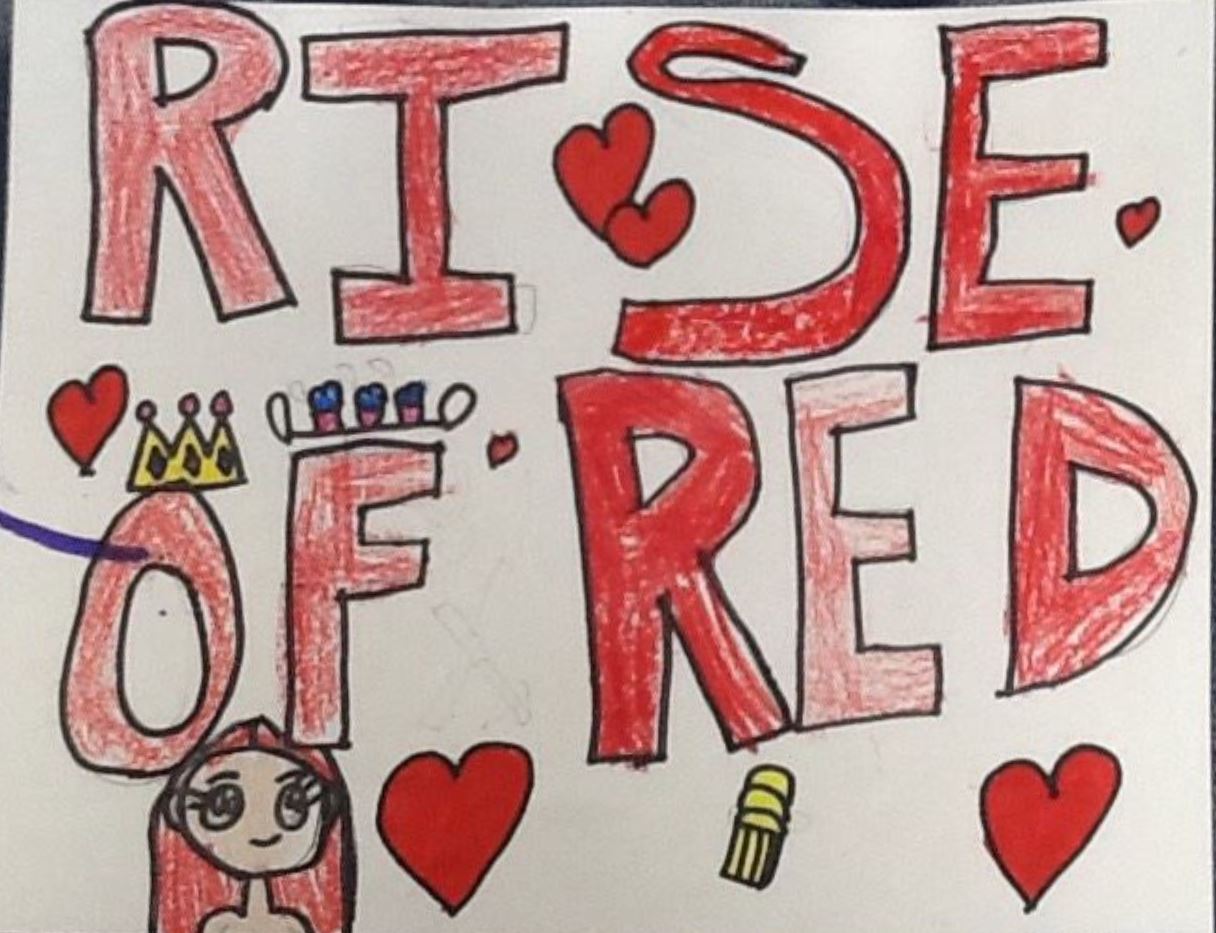 RISE
OF RED